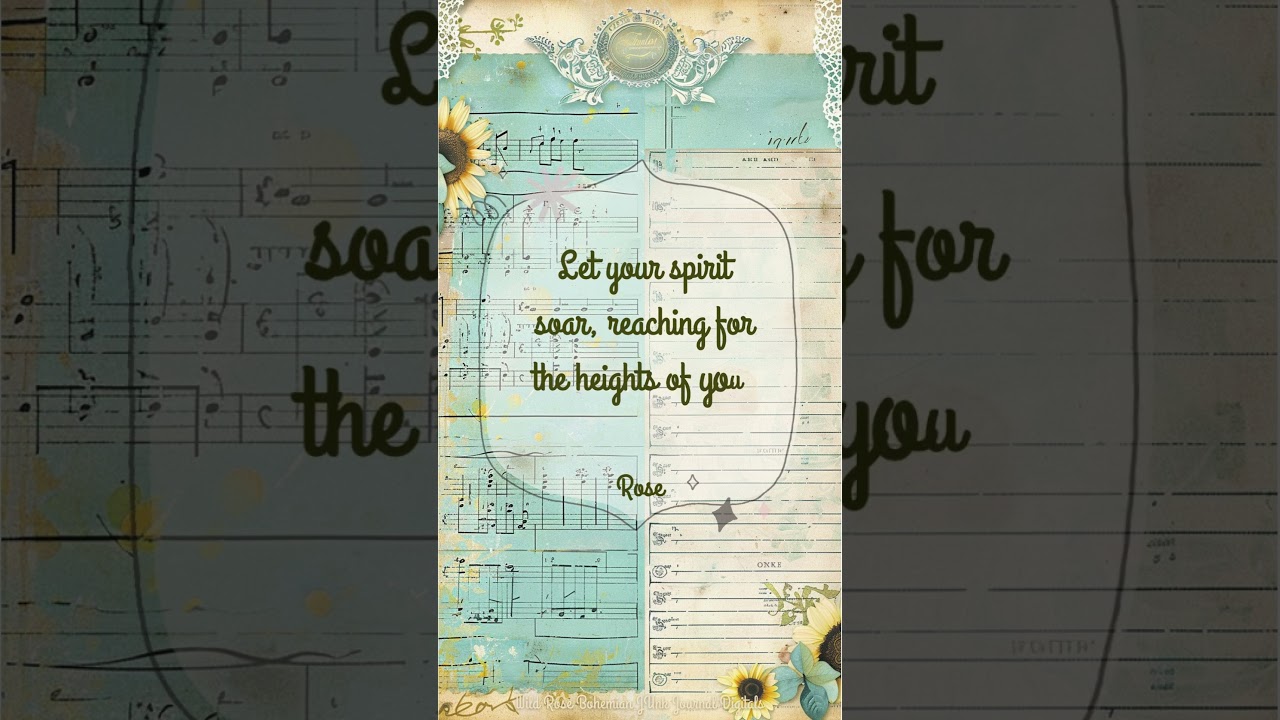 Let your spirit
soar, reaching for
the heights of you
Rose
ONKE
Wild Rose Bohemian Junk Journal Digitals